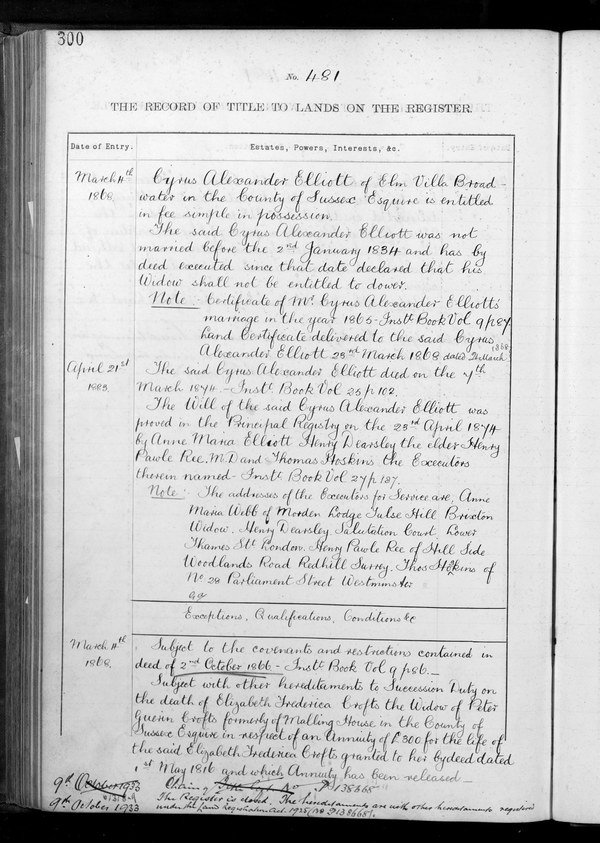 300
No. 481
THE RECORD OF TITLE TO LANDS ON THE REGISTER.
Date of Entry.
Estates, Powers, Interests, &c.
March 4th
1868.
Cyrus Alexander Elliott of Elm Villa Broad-
water in the County of Sussex Esquire is entitled
in fee simple in possession.
The said Cyrus Alexander Elliott was not
married before the 2nd January 1834 and has by
deed executed since that date declared that his
Widow shall not be entitled to dower.
Note:- Certificate of Mr. Cyrus Alexander Elliott's
marriage in the year 1865 - Instt. Book Vol 9 p 87.
Land Certificate delivered to the said Cyrus
Alexander Elliott 23rd March 1868 dated March 1868
April 21st
1883.
The said Cyrus Alexander Elliott died on the 7th
March 1874. - Instt. Book Vol 25 p 102.
The Will of the said Cyrus Alexander Elliott was
proved in the Principal Registry on the 23rd April 1874
by Anne Maria Elliott Henry Dearsley the elder Henry
Pawle Ree. M.D and Thomas Hoskins the Executors
therein named - Instt. Book Vol 27 p 137.
Note:- The addresses of the Executors for Service are, Anne
Maria Webb of Morden Lodge Tulse Hill Brixton
Widow. Henry Dearsley, Salutation Court, Lower
Thames St. London. Henry Pawle Ree of Hill Side
Woodlands Road Redhill Surrey. Thos Hoskins of
No. 28 Parliament Street Westminster
Exceptions, Qualifications, Conditions &c
March 4th
1868.
Subject to the covenants and restrictions contained in
deed of 2nd October 1866 - Instt. Book Vol 9 p 86.
Subject with other hereditements to Succession Duty on
the death of Elizabeth Frederica Crofts the Widow of Peter
Guerin Crofts formerly of Malling House in the County of
Sussex Esquire in respect of an Annuity of £300 for the life of
the said Elizabeth Frederica Crofts granted to her by deed dated
1st May 1816 and which Annuity has been released
9th October 1933
P 138668
9th October 1933
The Register is closed. The hereditaments are with other hereditaments registered
under the Land Registration Act. 1925